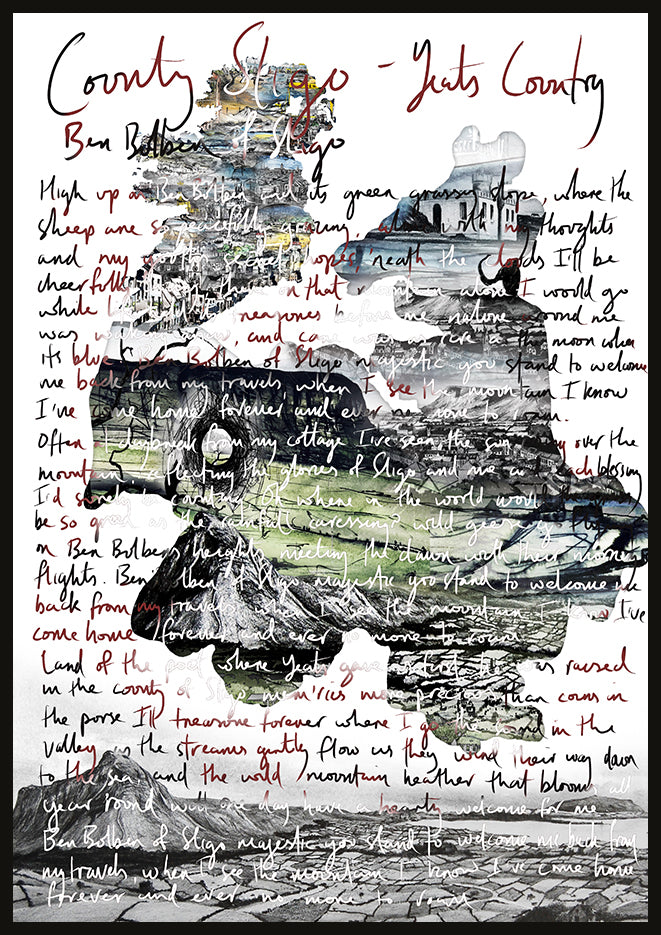 County Sligo - Yeats Country
Ben Bolben of Sligo
High up on Ben Bolben and its green grassy slope, where the
sheep are so peacefully grazing, alone with my thoughts
and my youthful secret hopes, 'neath the clouds I'll be
cheerfully on that mountain alone I would go
while before me nature round me
was and the moon when
its blue Ben Bolben of Sligo majestic you stand to welcome
me back from my travels, when I see the mountain I know
I've come home forever and ever no more to roam.
Often at daybreak from my cottage I've seen, the sun over the
mountain, reflecting the glories of Sligo and me each blessing
I'd surely be counting Oh where in the world would
be so green as the rainfall caressing? wild geese
on Ben Bolbens heights meeting the dawn with their
flights. Ben Bolben of Sligo majestic you stand to welcome me
back from my travels when I see the mountain I know I've
come home forever and ever no more to roam
Land of the poet where Yeats gave was raised
in the county of Sligo mem'ries more precious than coins in
the purse I'll treasure forever where I go hand in the
valley as the streams gently flow as they wind their way down
to the sea and the wild mountain heather that blooms all
year round will one day have a hearty welcome for me
Ben Bolben of Sligo majestic you stand to welcome me back from
my travels, when I see the mountain I know I've come home
forever and ever no more to roam